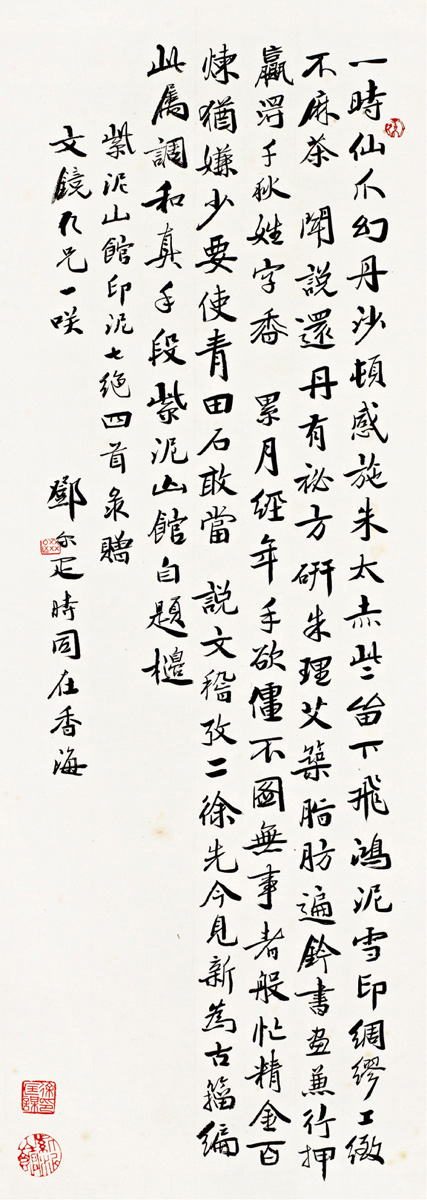 一時仙爪幻丹沙頓感施朱太赤些留下飛鴻泥雪印綢繆工緻
不麻茶 聞說還丹有祕方研朱理艾築脂肪遍鈐書畫兼行押
贏淂千秋姓字香 累月經年手欲僵不圖無事者般忙精金百
煉猶嫌少要使青田石敢當 說文稽攷二徐先今見新為古籀編
此屬調和真手段紫泥山館自題櫨
紫泥山館印泥七绝四首彔贈
文鏡仁兄一咲
鄧尔疋時同在香海